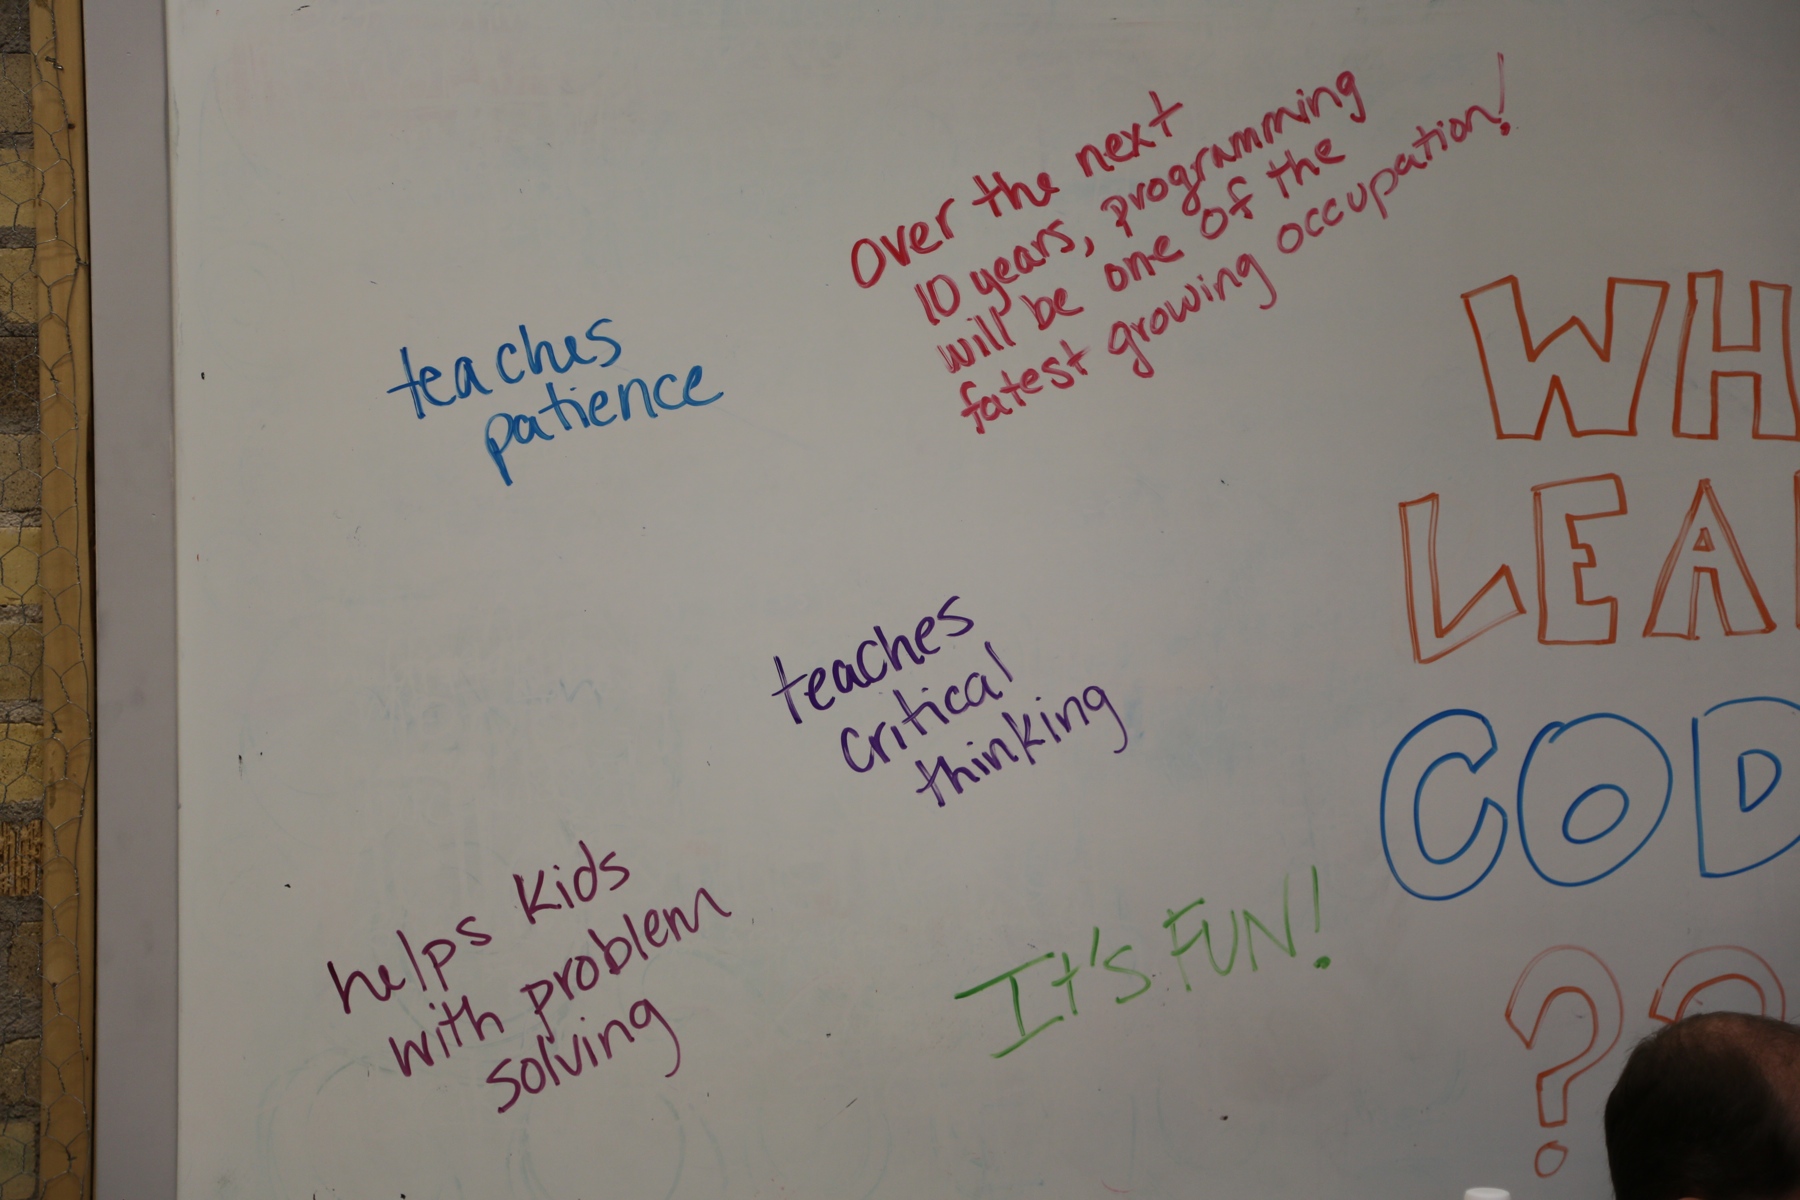 Over the next
10 years, programming
will be one of the
fatest growing occupation!
teaches
patience
WH
LEA
COD
??
teaches
critical
thinking
helps kids
with problem
solving
It's FUN!